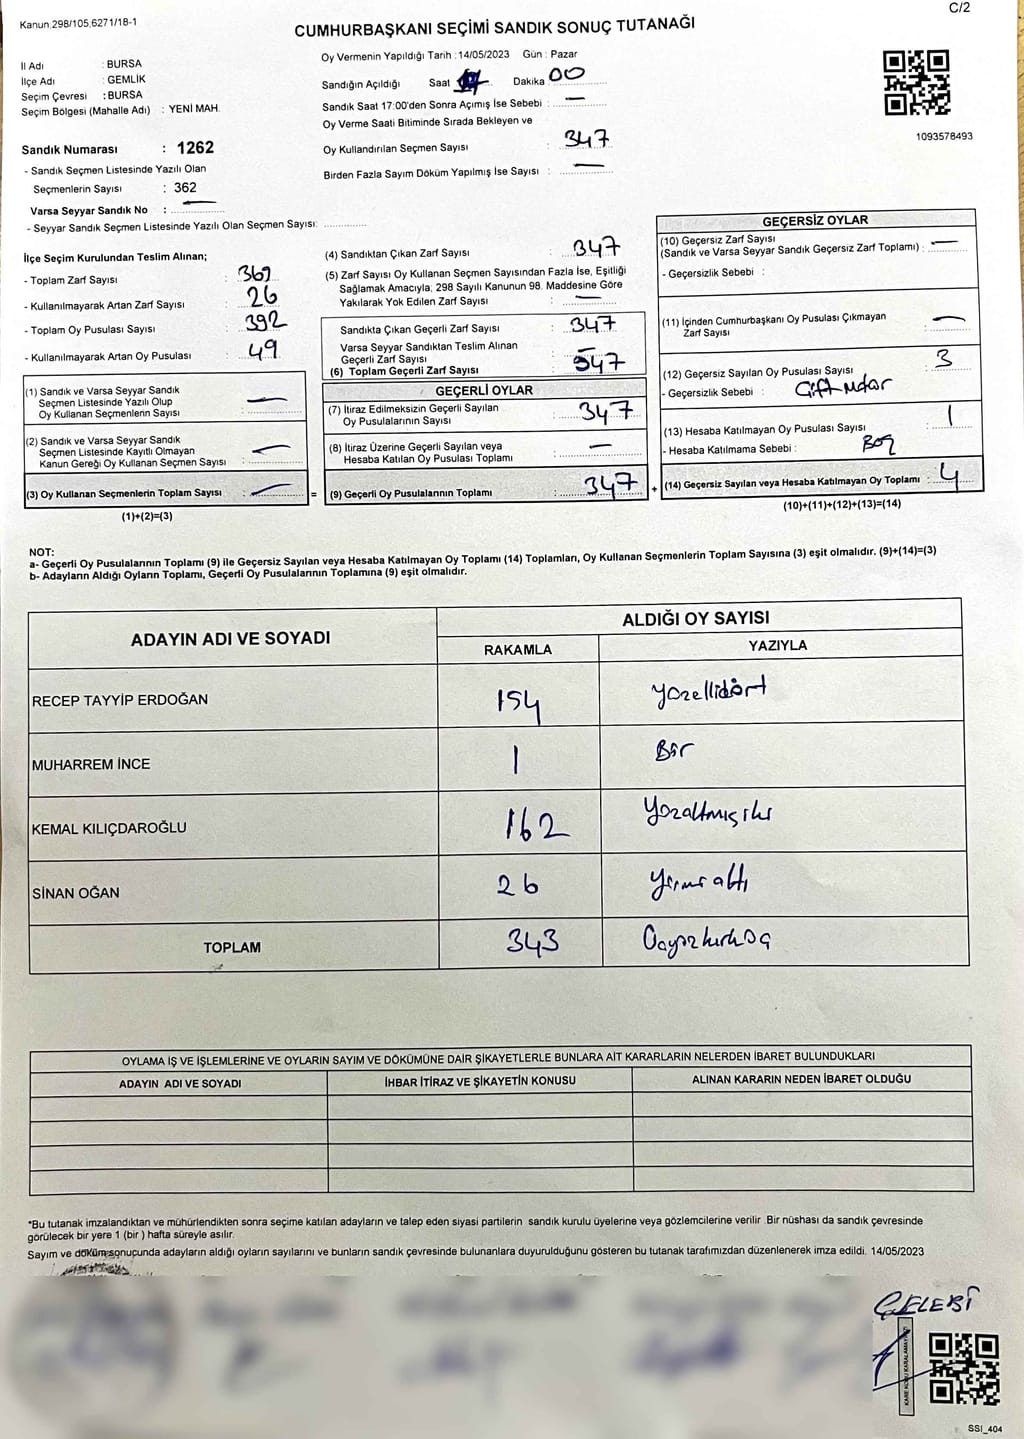 Kanun.298/105,6271/18-1
C/2
CUMHURBAŞKANI SEÇİMİ SANDIK SONUÇ TUTANAĞI
İl Adı : BURSA
İlçe Adı : GEMLİK
Seçim Çevresi : BURSA
Seçim Bölgesi (Mahalle Adı) : YENİ MAH.
Sandık Numarası : 1262
- Sandık Seçmen Listesinde Yazılı Olan
Seçmenlerin Sayısı : 362
Varsa Seyyar Sandık No :
- Seyyar Sandık Seçmen Listesinde Yazılı Olan Seçmen Sayısı:
Oy Vermenin Yapıldığı Tarih : 14/05/2023 Gün : Pazar
Sandığın Açıldığı Saat Dakika 00
Sandık Saat 17:00'den Sonra Açımış İse Sebebi : —
Oy Verme Saati Bitiminde Sırada Bekleyen ve
Oy Kullandırılan Seçmen Sayısı : 347
Birden Fazla Sayım Döküm Yapılmış İse Sayısı : —
1093578493
İlçe Seçim Kurulundan Teslim Alınan;
- Toplam Zarf Sayısı :
- Kullanılmayarak Artan Zarf Sayısı : 26
- Toplam Oy Pusulası Sayısı : 392
- Kullanılmayarak Artan Oy Pusulası : 49
(1) Sandık ve Varsa Seyyar Sandık
Seçmen Listesinde Yazılı Olup
Oy Kullanan Seçmenlerin Sayısı : —
(2) Sandık ve Varsa Seyyar Sandık
Seçmen Listesinde Kayıtlı Olmayan
Kanun Gereği Oy Kullanan Seçmen Sayısı : —
(3) Oy Kullanan Seçmenlerin Toplam Sayısı : —
(1)+(2)=(3)
=
(4) Sandıktan Çıkan Zarf Sayısı : 347
(5) Zarf Sayısı Oy Kullanan Seçmen Sayısından Fazla İse, Eşitliği
Sağlamak Amacıyla; 298 Sayılı Kanunun 98. Maddesine Göre
Yakılarak Yok Edilen Zarf Sayısı : —
Sandıkta Çıkan Geçerli Zarf Sayısı : 347
Varsa Seyyar Sandıktan Teslim Alınan
Geçerli Zarf Sayısı : —
(6) Toplam Geçerli Zarf Sayısı : 347
GEÇERLİ OYLAR
(7) İtiraz Edilmeksizin Geçerli Sayılan
Oy Pusulalarının Sayısı : 347
(8) İtiraz Üzerine Geçerli Sayılan veya
Hesaba Katılan Oy Pusulası Toplamı : —
(9) Geçerli Oy Pusulalarının Toplamı : 347
+
GEÇERSİZ OYLAR
(10) Geçersiz Zarf Sayısı
(Sandık ve Varsa Seyyar Sandık Geçersiz Zarf Toplamı) : —
- Geçersizlik Sebebi :
(11) İçinden Cumhurbaşkanı Oy Pusulası Çıkmayan
Zarf Sayısı : —
(12) Geçersiz Sayılan Oy Pusulası Sayısı : 3
- Geçersizlik Sebebi :
(13) Hesaba Katılmayan Oy Pusulası Sayısı : 1
- Hesaba Katılmama Sebebi : Boş
(14) Geçersiz Sayılan veya Hesaba Katılmayan Oy Toplamı : 4
(10)+(11)+(12)+(13)=(14)
NOT:
a- Geçerli Oy Pusulalarının Toplamı (9) ile Geçersiz Sayılan veya Hesaba Katılmayan Oy Toplamı (14) Toplamları, Oy Kullanan Seçmenlerin Toplam Sayısına (3) eşit olmalıdır. (9)+(14)=(3)
b- Adayların Aldığı Oyların Toplamı, Geçerli Oy Pusulalarının Toplamına (9) eşit olmalıdır.
ADAYIN ADI VE SOYADI
ALDIĞI OY SAYISI
RAKAMLA YAZIYLA
RECEP TAYYİP ERDOĞAN 154 Yüzellidört
MUHARREM İNCE 1 Bir
KEMAL KILIÇDAROĞLU 162 Yüzaltmışiki
SİNAN OĞAN 26 Yirmi altı
TOPLAM 343 Üçyüzkırküç
OYLAMA İŞ VE İŞLEMLERİNE VE OYLARIN SAYIM VE DÖKÜMÜNE DAİR ŞİKAYETLERLE BUNLARA AİT KARARLARIN NELERDEN İBARET BULUNDUKLARI
ADAYIN ADI VE SOYADI İHBAR İTİRAZ VE ŞİKAYETİN KONUSU ALINAN KARARIN NEDEN İBARET OLDUĞU
*Bu tutanak imzalandıktan ve mühürlendikten sonra seçime katılan adayların ve talep eden siyasi partilerin sandık kurulu üyelerine veya gözlemcilerine verilir .Bir nüshası da sandık çevresinde
görülecek bir yere 1 (bir ) hafta süreyle asılır.
Sayım ve döküm sonucunda adayların aldığı oyların sayılarını ve bunların sandık çevresinde bulunanlara duyurulduğunu gösteren bu tutanak tarafımızdan düzenlenerek imza edildi. 14/05/2023
ÇELEBİ
KARE KODU KARALAMAYINIZ
SSI_404